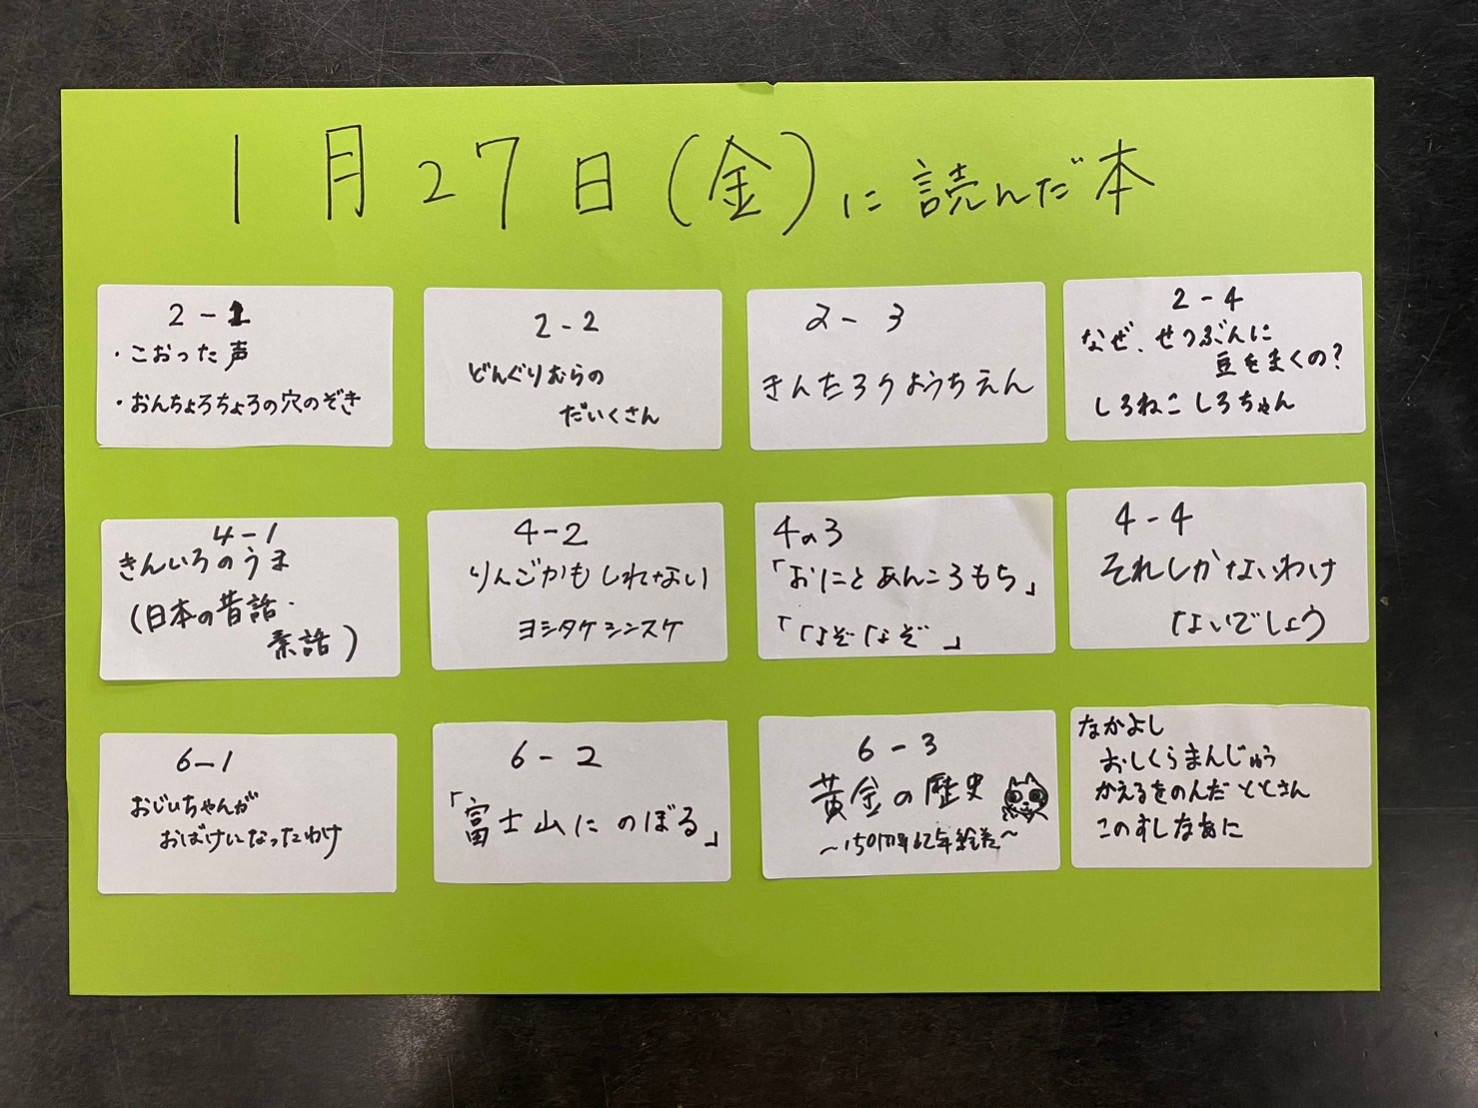 1月27日(金)に読んだ本
2-1
・こおった声
・おんちょろちょろの穴のぞき
2-2
どんぐりむらの
だいくさん
2-3
きんたろうようちえん
2-4
なぜ、せつぶんに
豆をまくの?
しろねこしろちゃん
4-1
きんいろのうま
(日本の昔話・
素話)
4-2
りんごかもしれない
ヨシタケシンスケ
4の3
「おにとあんころもち」
「なぞなぞ」
4-4
それしかないわけ
ないでしょう
6-1
おじいちゃんが
おばけになったわけ
6-2
「富士山にのぼる」
6-3
黄金の歴史
～150周年記念絵巻～
なかよし
おしくらまんじゅう
かえるをのんだととさん
このすしなあに